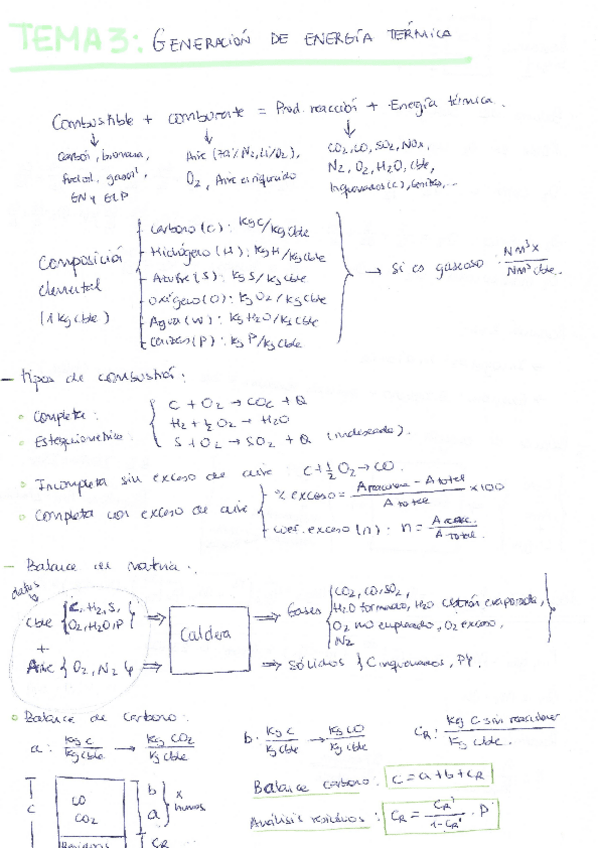 TEMA 3: GENERACIÓN DE ENERGÍA TÉRMICA
Combustible + comburente = Prod. reacción + Energía térmica.
Carbón, biomasa, Aire (79% N2, 21% O2), CO2, CO, SO2, NOx,
fueloil, gasoil, O2, Aire enriquecido N2, O2, H2O, cble,
GN y GLP Inquemados (C), Cenizas,...
Composición elemental (1 kg cble)
Carbono (C): kg C/kg cble
Hidrógeno (H): kg H/kg cble
Azufre (S): kg S/kg cble
Oxígeno (O): kg O2/kg cble
Agua (W): kg H2O/kg cble
Cenizas (P): kg P/kg cble
→ Si es gaseoso: Nm³X/Nm³ cble.
- Tipos de combustión:
Completa:
Estequiométrica:
C + O2 → CO2 + Q
H2 + 1/2 O2 → H2O
S + O2 → SO2 + Q (indeseada).
Incompleta sin exceso de aire: C + 1/2 O2 → CO.
Completa con exceso de aire
% exceso = × 100
coef. exceso (n): n =
- Balance de materia:
datos
Cble { C, H2, S, O2, H2O, P
+
Aire { O2, N2
Caldera
Gases
CO2, CO, SO2,
H2O formado, H2O
O2 no empleado, O2 exceso,
N2
Sólidos { Cinquemados, P
Balance de carbono:
a: kg C/kg cble → kg CO2/kg cble
b: kg C/kg cble → kg CO/kg cble
CR: kg C sin reaccionar/kg cble.
Balance carbono: C = a + b + CR
Análisis residuos: CR = CR'/1-CR' · P
C
CO
CO2
b
a
x humos
Residuos
CR